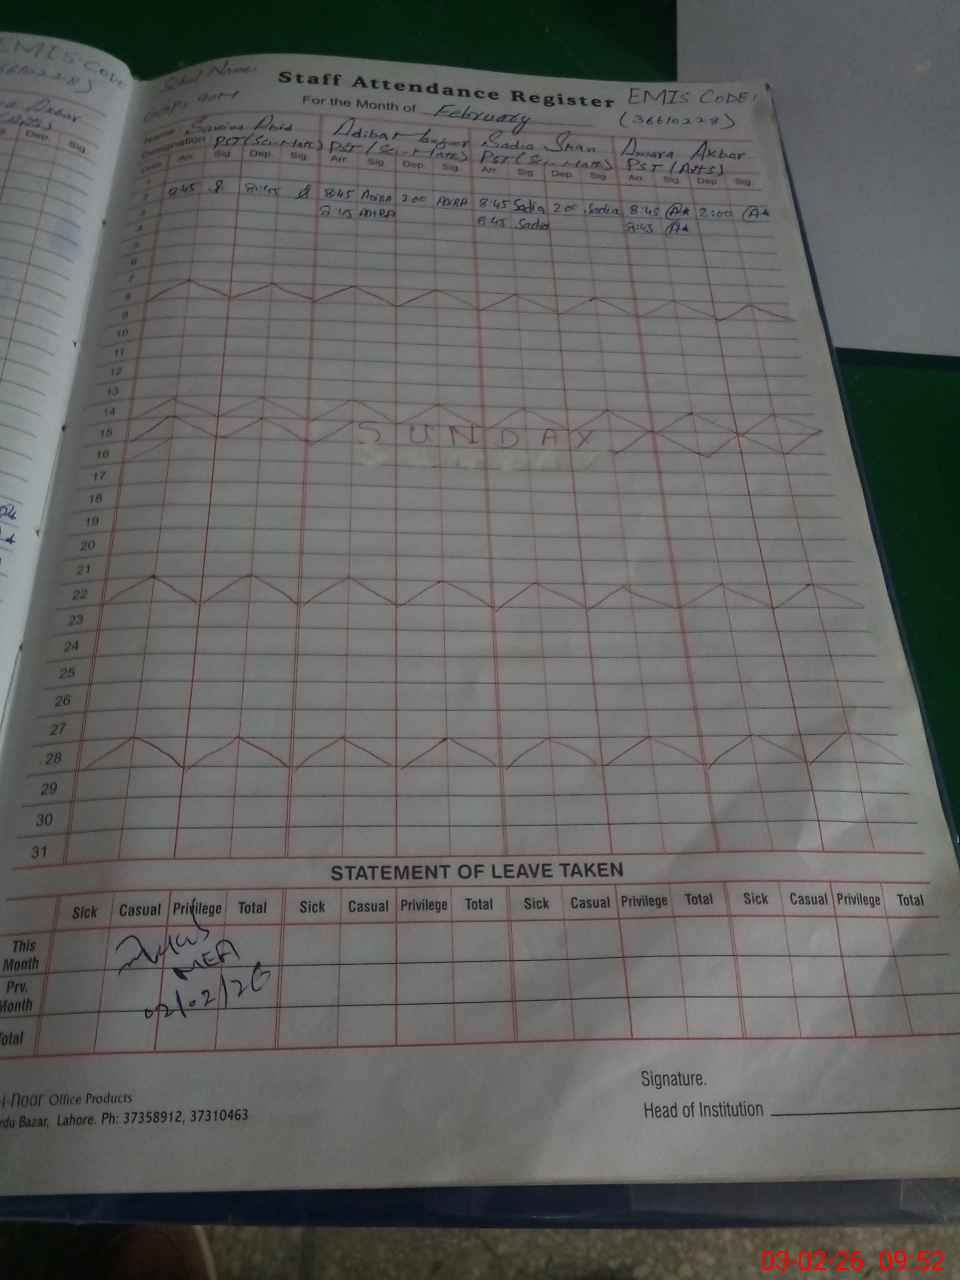 EMIS CODE
School Name:
Staff Attendance Register
EMIS CODE:
For the Month of February
(36610228)
Name
Designation
Adiba
Sadia Shan
Amara Akbar
PST (Sci-Math)
PST (Sci-Math)
PST (Sci-Math)
PST (Arts)
Dep. Sig.
Date Arr. Sig. Dep. Sig. Arr. Sig. Dep. Sig. Arr. Sig. Dep. Sig. Arr. Sig. Dep. Sig.
1
2 8:45 8:45 ADIBA 2:00 ADIBA 8:45 Sadia 2:00 Sadia 8:45 2:00
3 8:45 ADIBA 8:45 Sadia 8:45
4
5
6
7
8
9
10
11
12
13
14
15 SUNDAY
16
17
18
19
20
21
22
23
24
25
26
27
28
29
30
31
STATEMENT OF LEAVE TAKEN
Sick Casual Privilege Total Sick Casual Privilege Total Sick Casual Privilege Total Sick Casual Privilege Total
This Month
MEA
Prv. Month
02/02/26
Total
Office Products
Bazar, Lahore. Ph: 37358912, 37310463
Signature.
Head of Institution
03-02-26 09:52